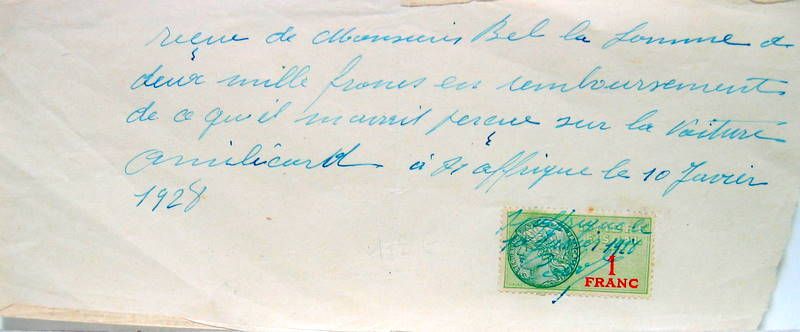 reçue de Monsieur Bel la somme de
deux mille francs en remboursement
de ce qu'il m'avait perçue sur la voiture
Amilcard à St affrique le 10 Javier
1928
St affrique le
1
FRANC